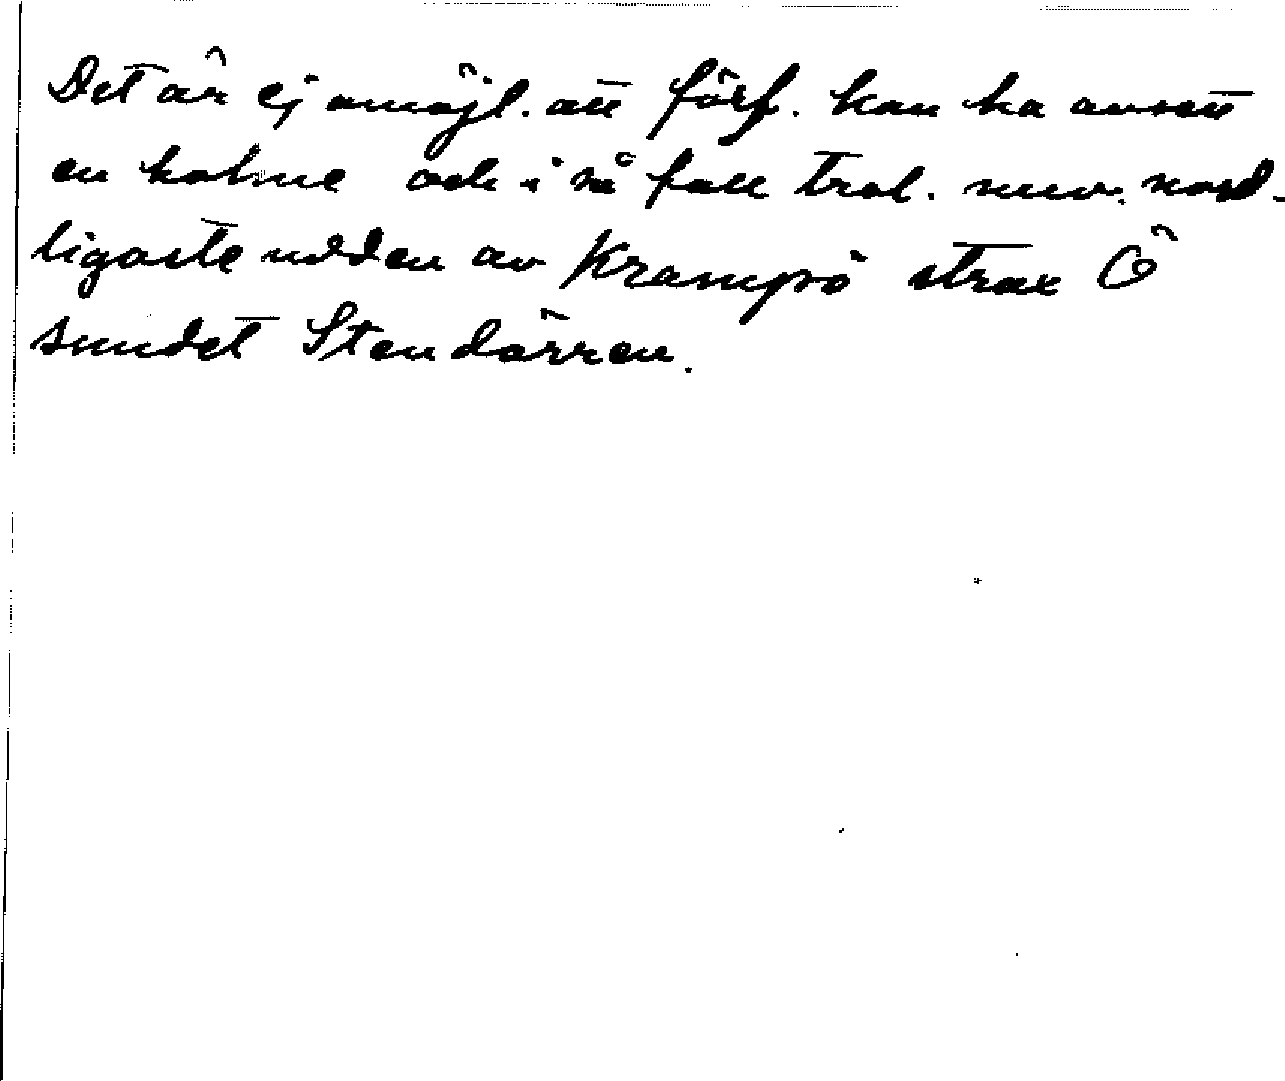 Det är ej omöjl. att förf. kan ha avsett
en holme och i så fall trol. nuv. nord-
ligaste udden av Krampö strax Ö
sundet Stendörren.